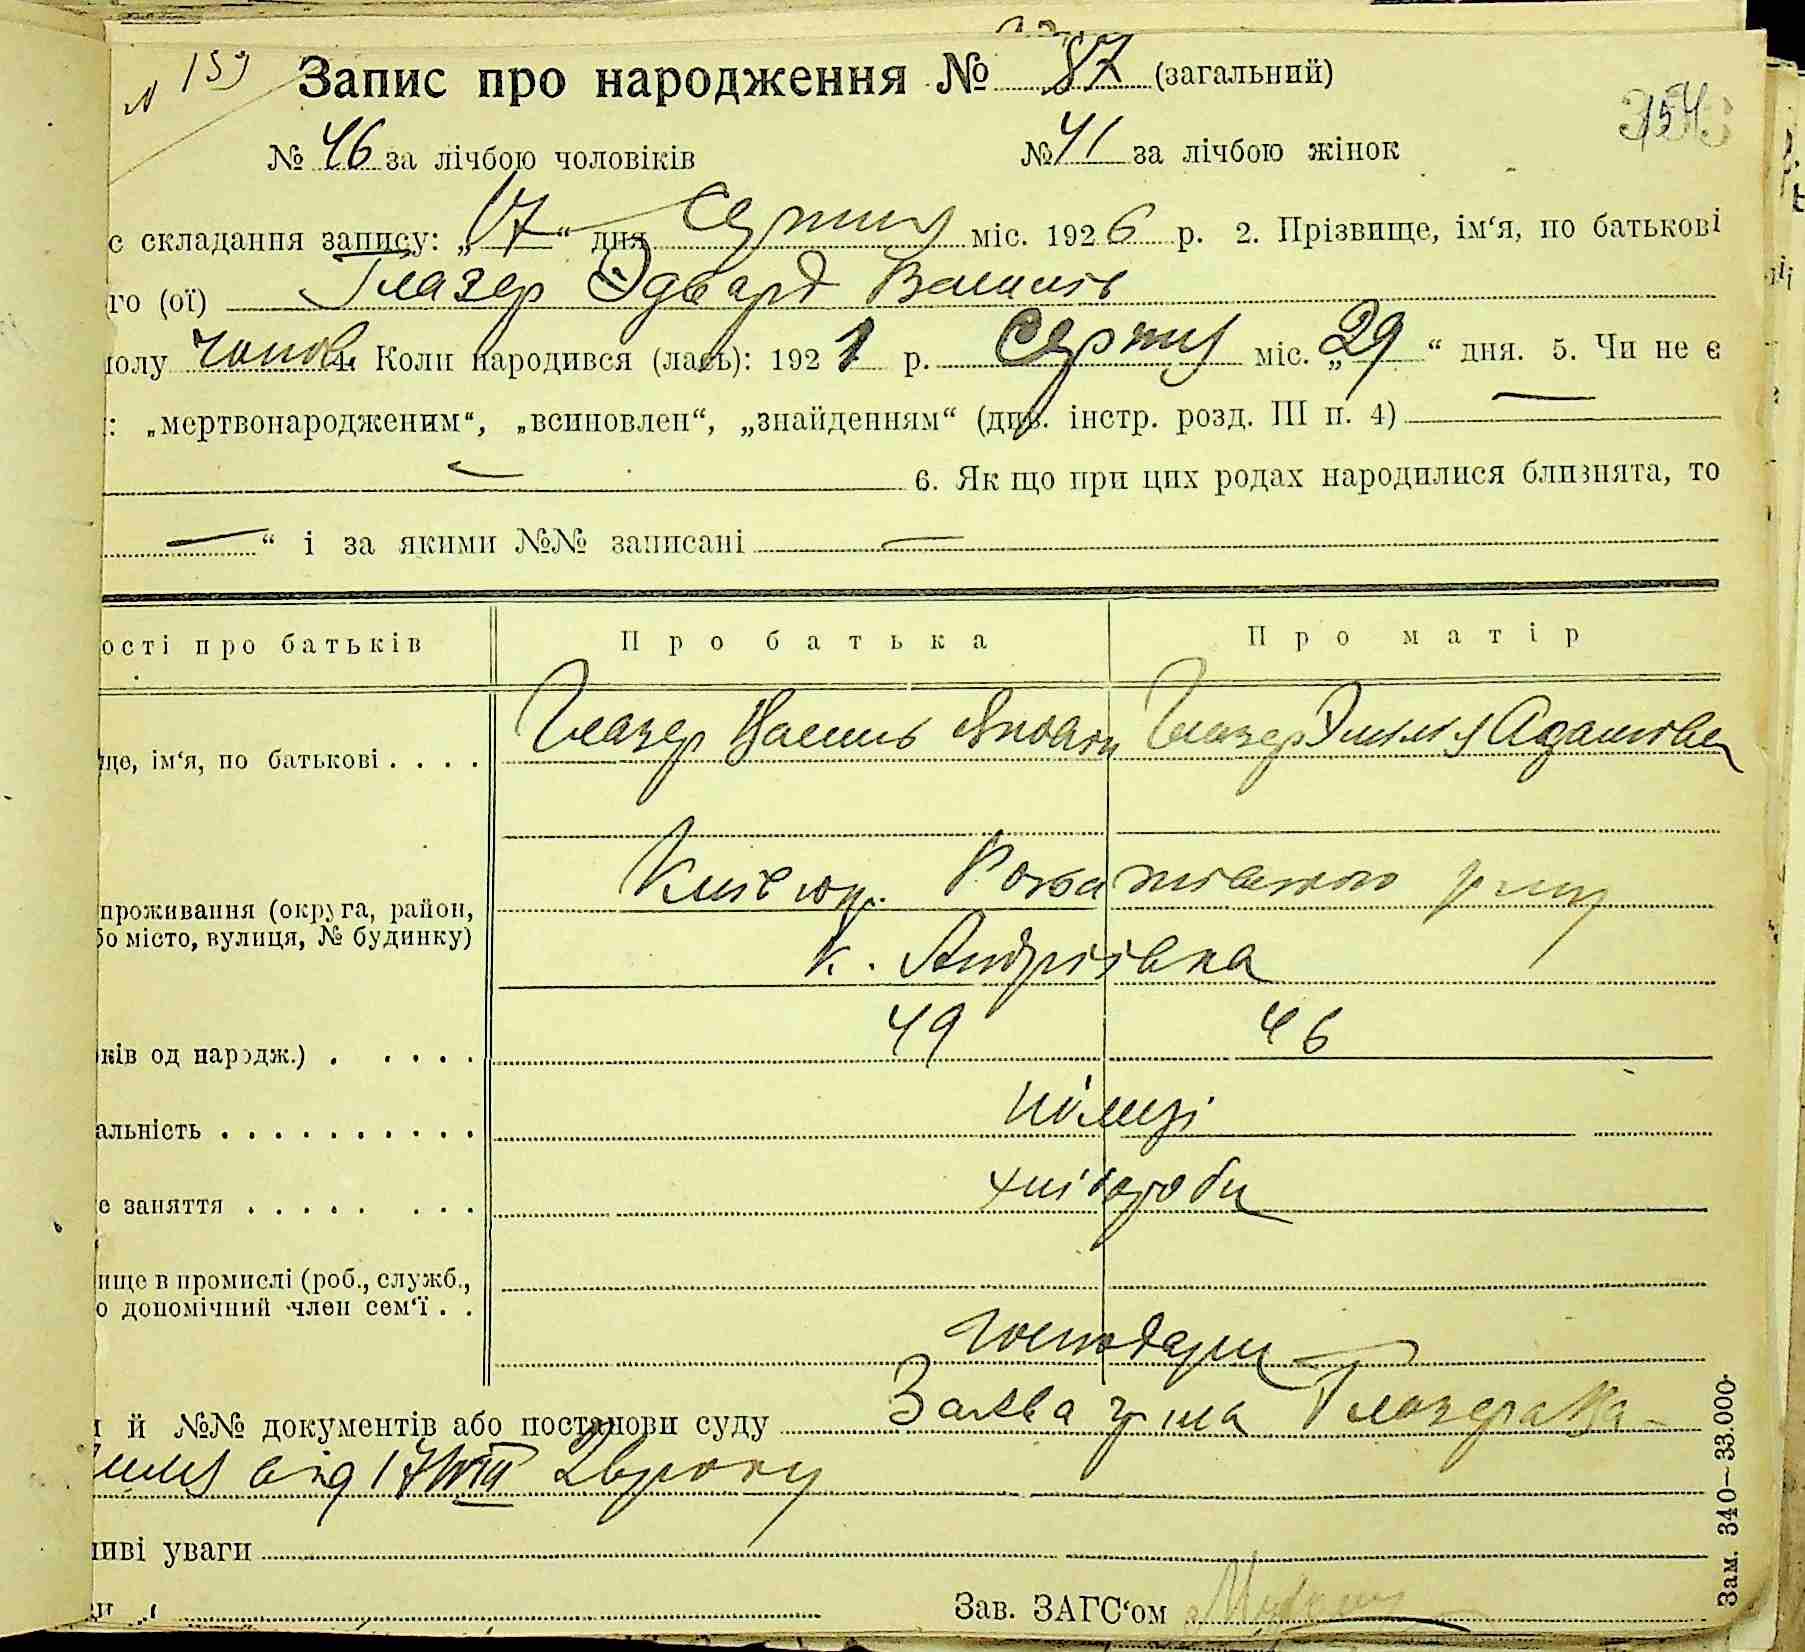 N 159 Запис про народження № 87 (загальний)
154
№ 46 за лічбою чоловіків № 41 за лічбою жінок
с складання запису: „17“ дня Серпня міс. 1926 р. 2. Прізвище, ім‘я, по батькові
го (ої) Глазер Эдвард Васильів
полу чолов. 4. Коли народився (лась): 1921 р. Серпня міс. „29“ дня. 5. Чи не є
: „мертвонародженим“, „всиновлен“, „знайденням“ (див. інстр. розд. III п. 4) —
— 6. Як що при цих родах народилися близнята, то
— “ і за якими №№ записані —
ості про батьків Про батька Про матір
ще, ім‘я, по батькові . . . . Глазер Василь Глазер Эмилия Адамовна
Київ окр. району
проживання (округа, район,
бо місто, вулиця, № будинку)
к. Андріївка
ків од народж.) . . . . . 49 46
альність . . . . . . . . . . німці
е заняття . . . . . . . . хлібороби
ище в промислі (роб., служб.,
о допомічний член сем‘ї . .
господарі
и й №№ документів або постанови суду Заява гр-на Глазера Ва-
силя від 17/VIII 26 року
иві уваги
Зав. ЗАГС‘ом
Зам. 340–33.000